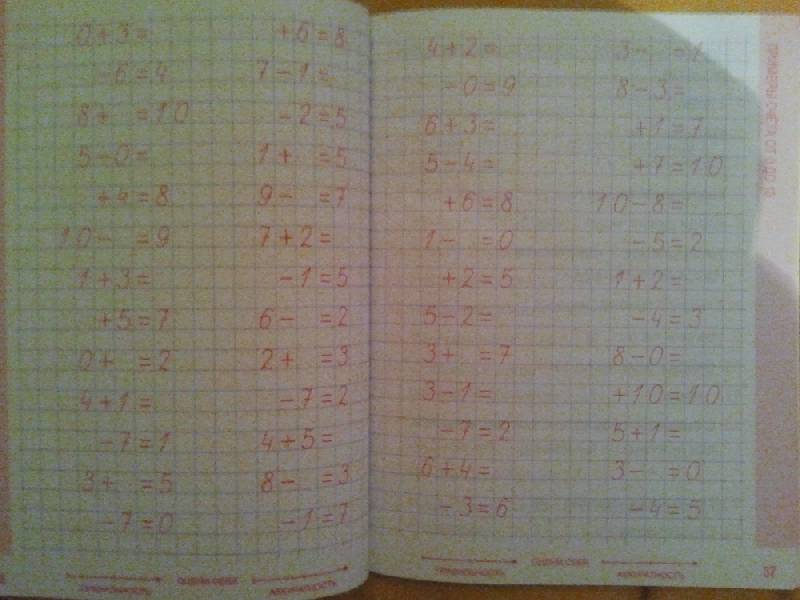 0+3=
-6=4
8+ =10
5-0=
+4=8
10- =9
1+3=
+5=7
0+ =2
4+1=
-7=1
3+ =5
-7=0
+6=8
7-1=
-2=5
1+ =5
9- =7
7+2=
-1=5
6- =2
2+ =3
-7=2
4+5=
8- =3
-1=7
ОЦЕНИ СЕБЯ
АККУРАТНОСТЬ
4+2=
-0=9
6+3=
5-4=
+6=8
1- =0
+2=5
5-2=
3+ =7
3-1=
-7=2
6+4=
-3=6
3- =1
8-3=
+1=7
+7=10
10-8=
-5=2
1+2=
-4=3
8-0=
+10=10
5+1=
3- =0
-4=5
ОЦЕНИ СЕБЯ
ПРАВИЛЬНОСТЬ
АККУРАТНОСТЬ
37